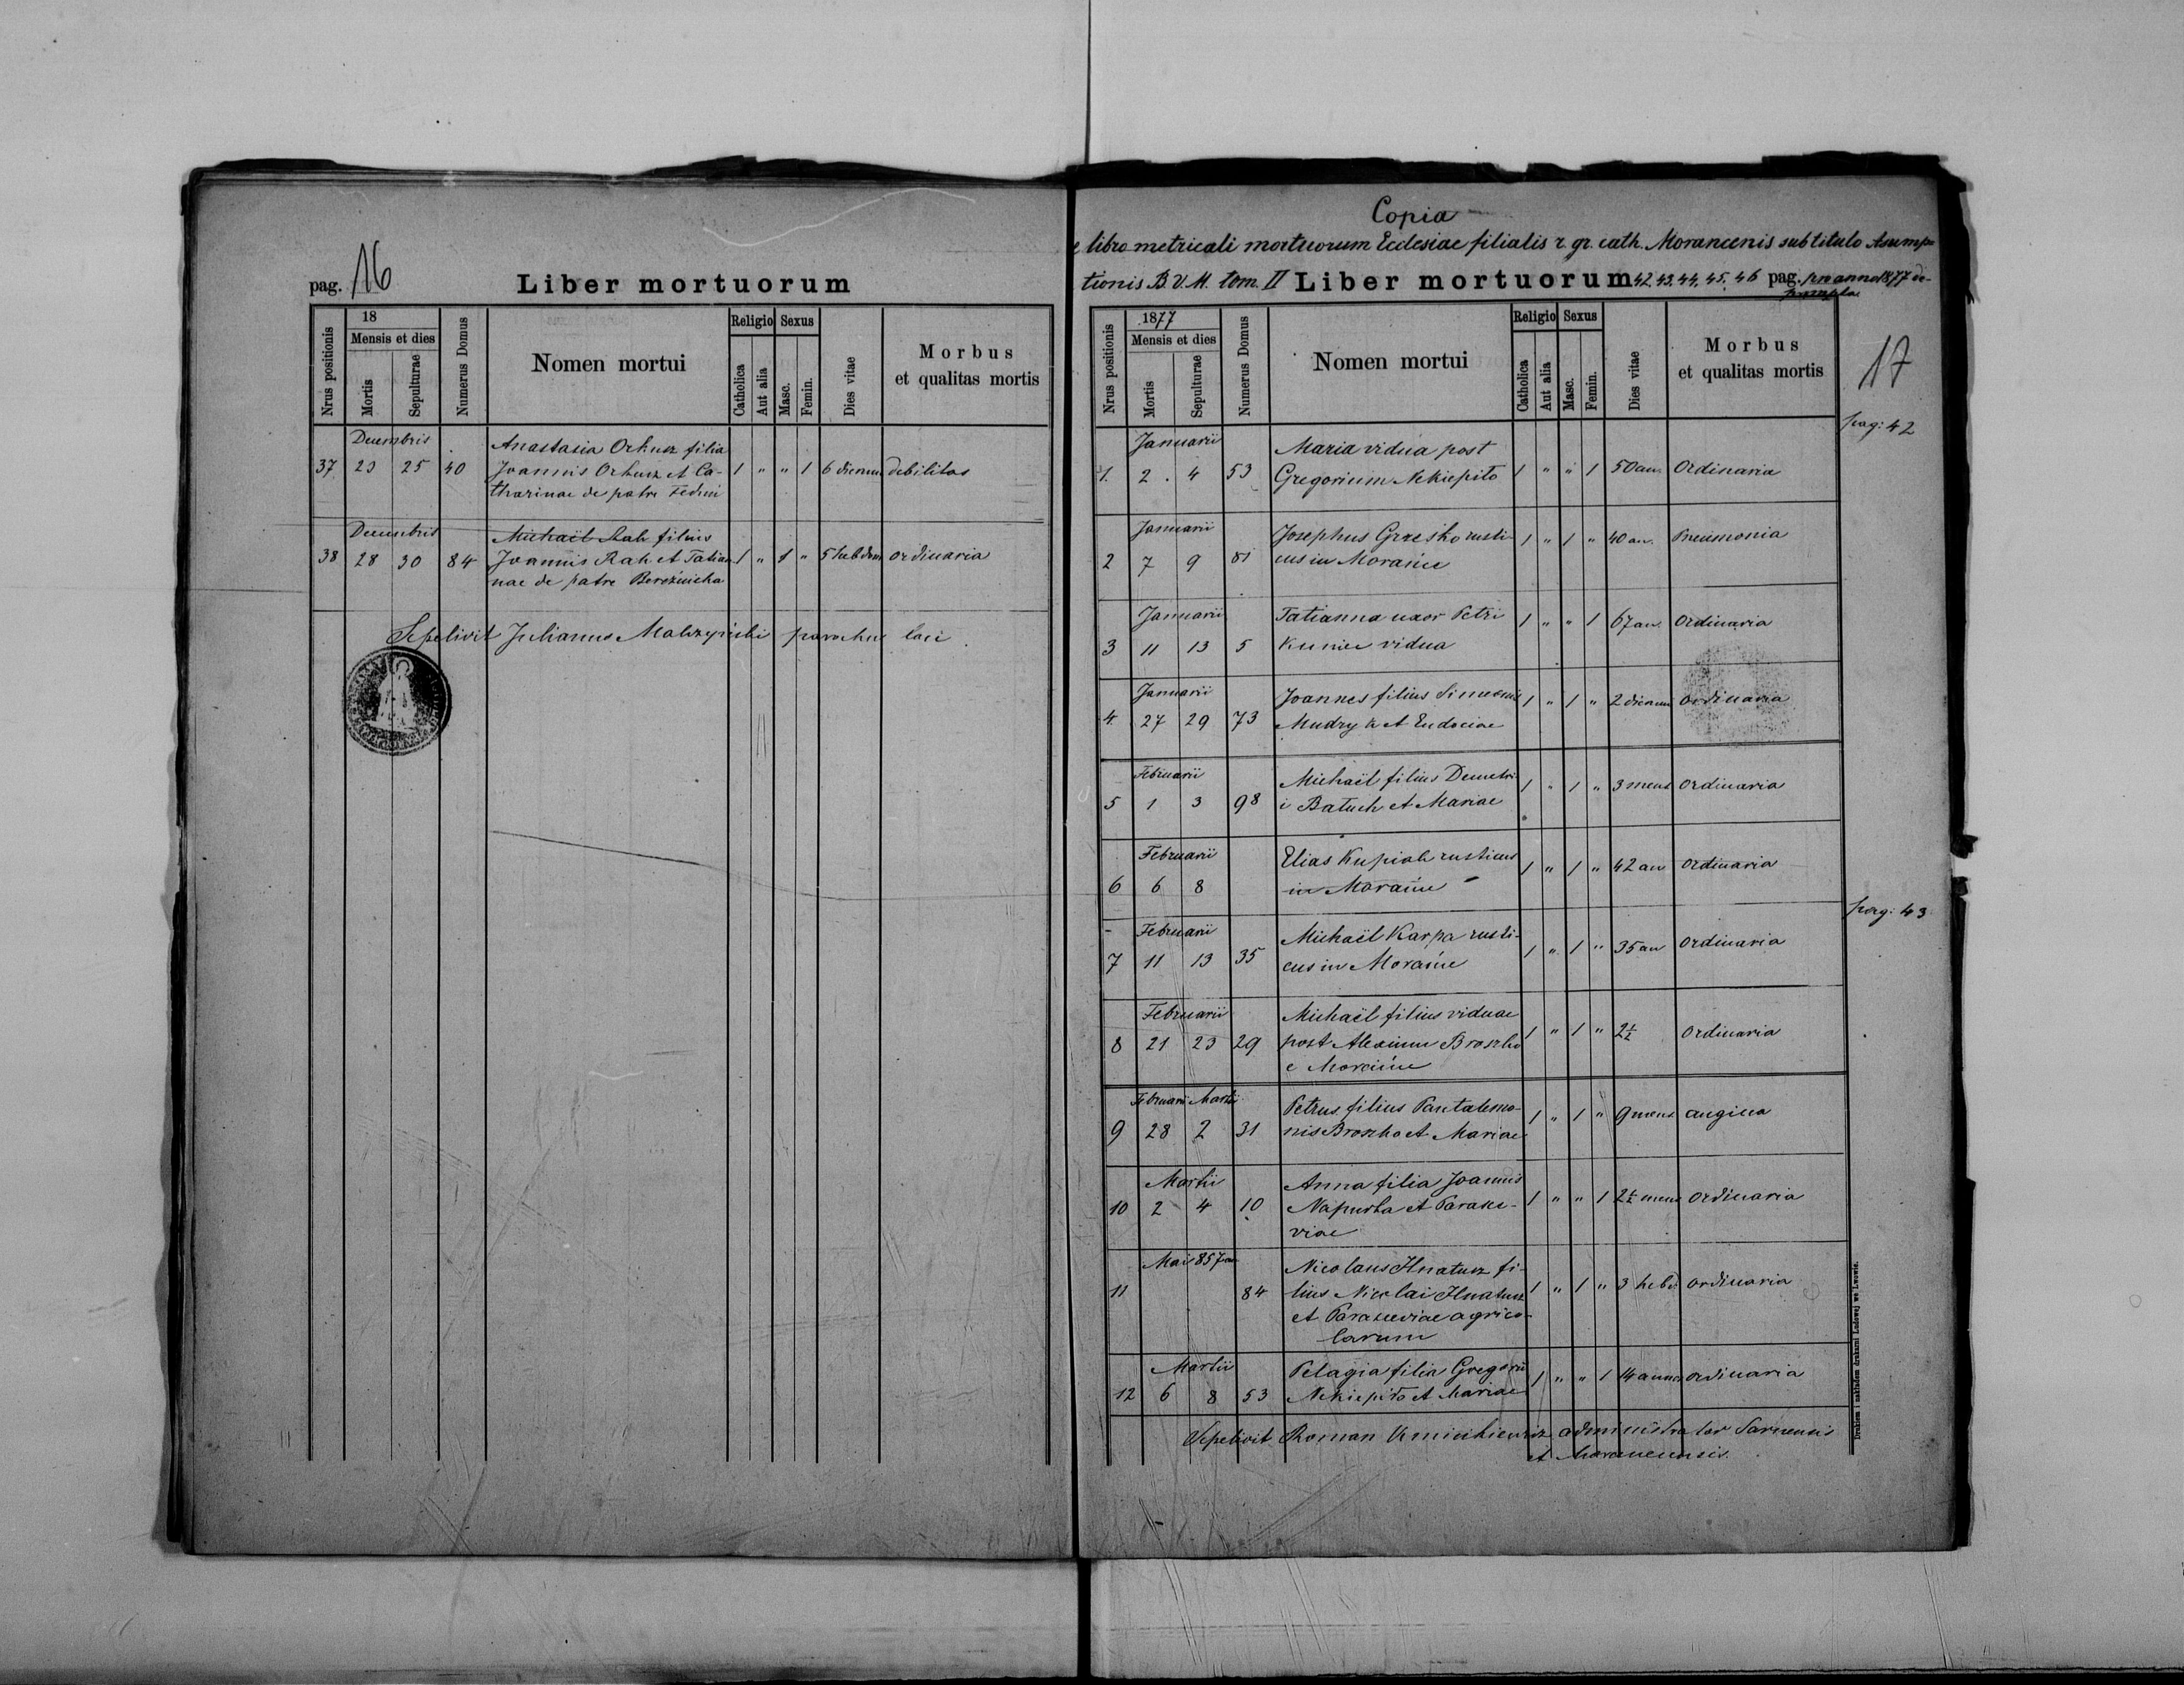 pag. 16
Liber mortuorum
Nrus positionis
18
Mensis et dies
Mortis
Sepulturae
Numerus Domus
Nomen mortui
Religio
Catholica
Aut alia
Sexus
Masc.
Femin.
Dies vitae
Morbus
et qualitas mortis
Decembris
Anastasia Orkusz filia
37 23 25 40 Joannis Orkusz et Ca- 1 " " 1 6 dierum debilitas
tharinae de patre Fedini
Decembris
Michaël Rak filius
38 28 30 84 Joannis Rak et Tatian 1 " 1 " 5 hebdom ordinaria
nae de patre
Sepelivit Julianus parochus loci
Copia
e libro metricali mortuorum Ecclesiae filialis r. gr. cath. Morancenis sub titulo Asump-
tionis B. V. M. tom. II Liber mortuorum 42, 43, 44, 45, 46 pag. pro anno 1877 de-
prompta
17
Nrus positionis
1877
Mensis et dies
Mortis
Sepulturae
Numerus Domus
Nomen mortui
Religio
Catholica
Aut alia
Sexus
Masc.
Femin.
Dies vitae
Morbus
et qualitas mortis
pag: 42
Januarii
Maria vidua post
1. 2 4 53 Gregorium Nekiepito 1 " " 1 50 an. Ordinaria
Januarii
Josephus Grzesko rusti- 1 " 1 " 40 an. Pneumonia
2 7 9 81 cus in Morańce
Januarii
Tatianna uxor Petri 1 " " 1 67 an. Ordinaria
3 11 13 5 Kuniec vidua
Januarii
Joannes filius Simeonis 1 " 1 " 2 dierum ordinaria
4. 27 29 73 Mudryk et Eudociae
Februarii
Michaël filius Demetri- 1 " 1 " 3 mens ordinaria
5 1 3 98 i Batuch et Mariae
Februarii
Elias Kupiak rusticus 1 " 1 " 42 an ordinaria
6 6 8 in Morańce
pag: 43
Februarii
Michaël Karpa rusti- 1 " 1 " 35 an ordinaria
7 11 13 35 cus in Morańce
Februarii
Michaël filius viduae
8 21 23 29 post Alexium Broszko 1 " 1 " 2½ ordinaria
e Morańce
Februarii Martii
Petrus filius Pantalemo- 1 " 1 " 9 mens angina
9 28 2 31 nis Broszko et Mariae
Martii
Anna filia Joannis
10 2 4 10 Napurka et Parasce- 1 " " 1 2½ mens ordinaria
viae
Mai 857
Nicolaus Hnatusz fi-
11 84 lius Nicolai Hnatusz 1 " 1 " 3 hebd ordinaria
et Parasceviae agrico-
larum
Martii
Pelagia filia Gregorii 1 " " 1 14 anno ordinaria
12 6 8 53 Nekiepito et Mariae
Sepelivit Roman administrator Sarnensis
et Morancensis.
Drukiem i nakładem drukarni Ludowej we Lwowie.